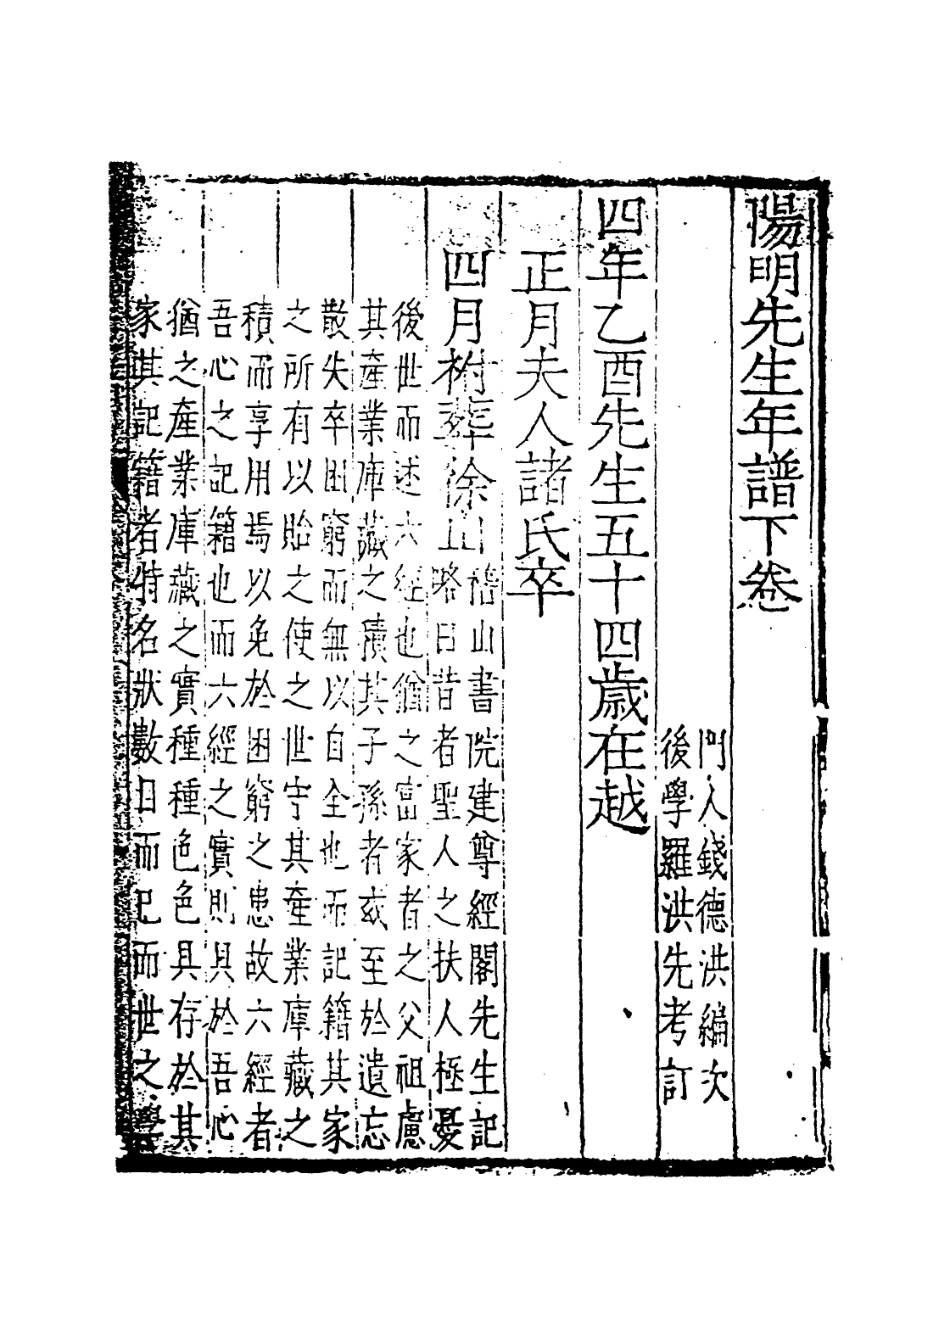 陽明先生年譜下卷
門人錢德洪編次
後學羅洪先考訂
四年乙酉先生五十四歲在越
正月夫人諸氏卒
四月祔葬徐山
稽山書院建尊經閣先生記
略曰昔者聖人之扶人極憂
後世而述六經也猶之富家者之父祖慮
其產業庫藏之積其子孫者或至於遺忘
散失卒困窮而無以自全也而記籍其家
之所有以貽之使之世守其產業庫藏之
積而享用焉以免於困窮之患故六經者
吾心之記籍也而六經之實則具於吾心
猶之產業庫藏之實種種色色具存於其
家其記籍者特名狀數目而已而世之學